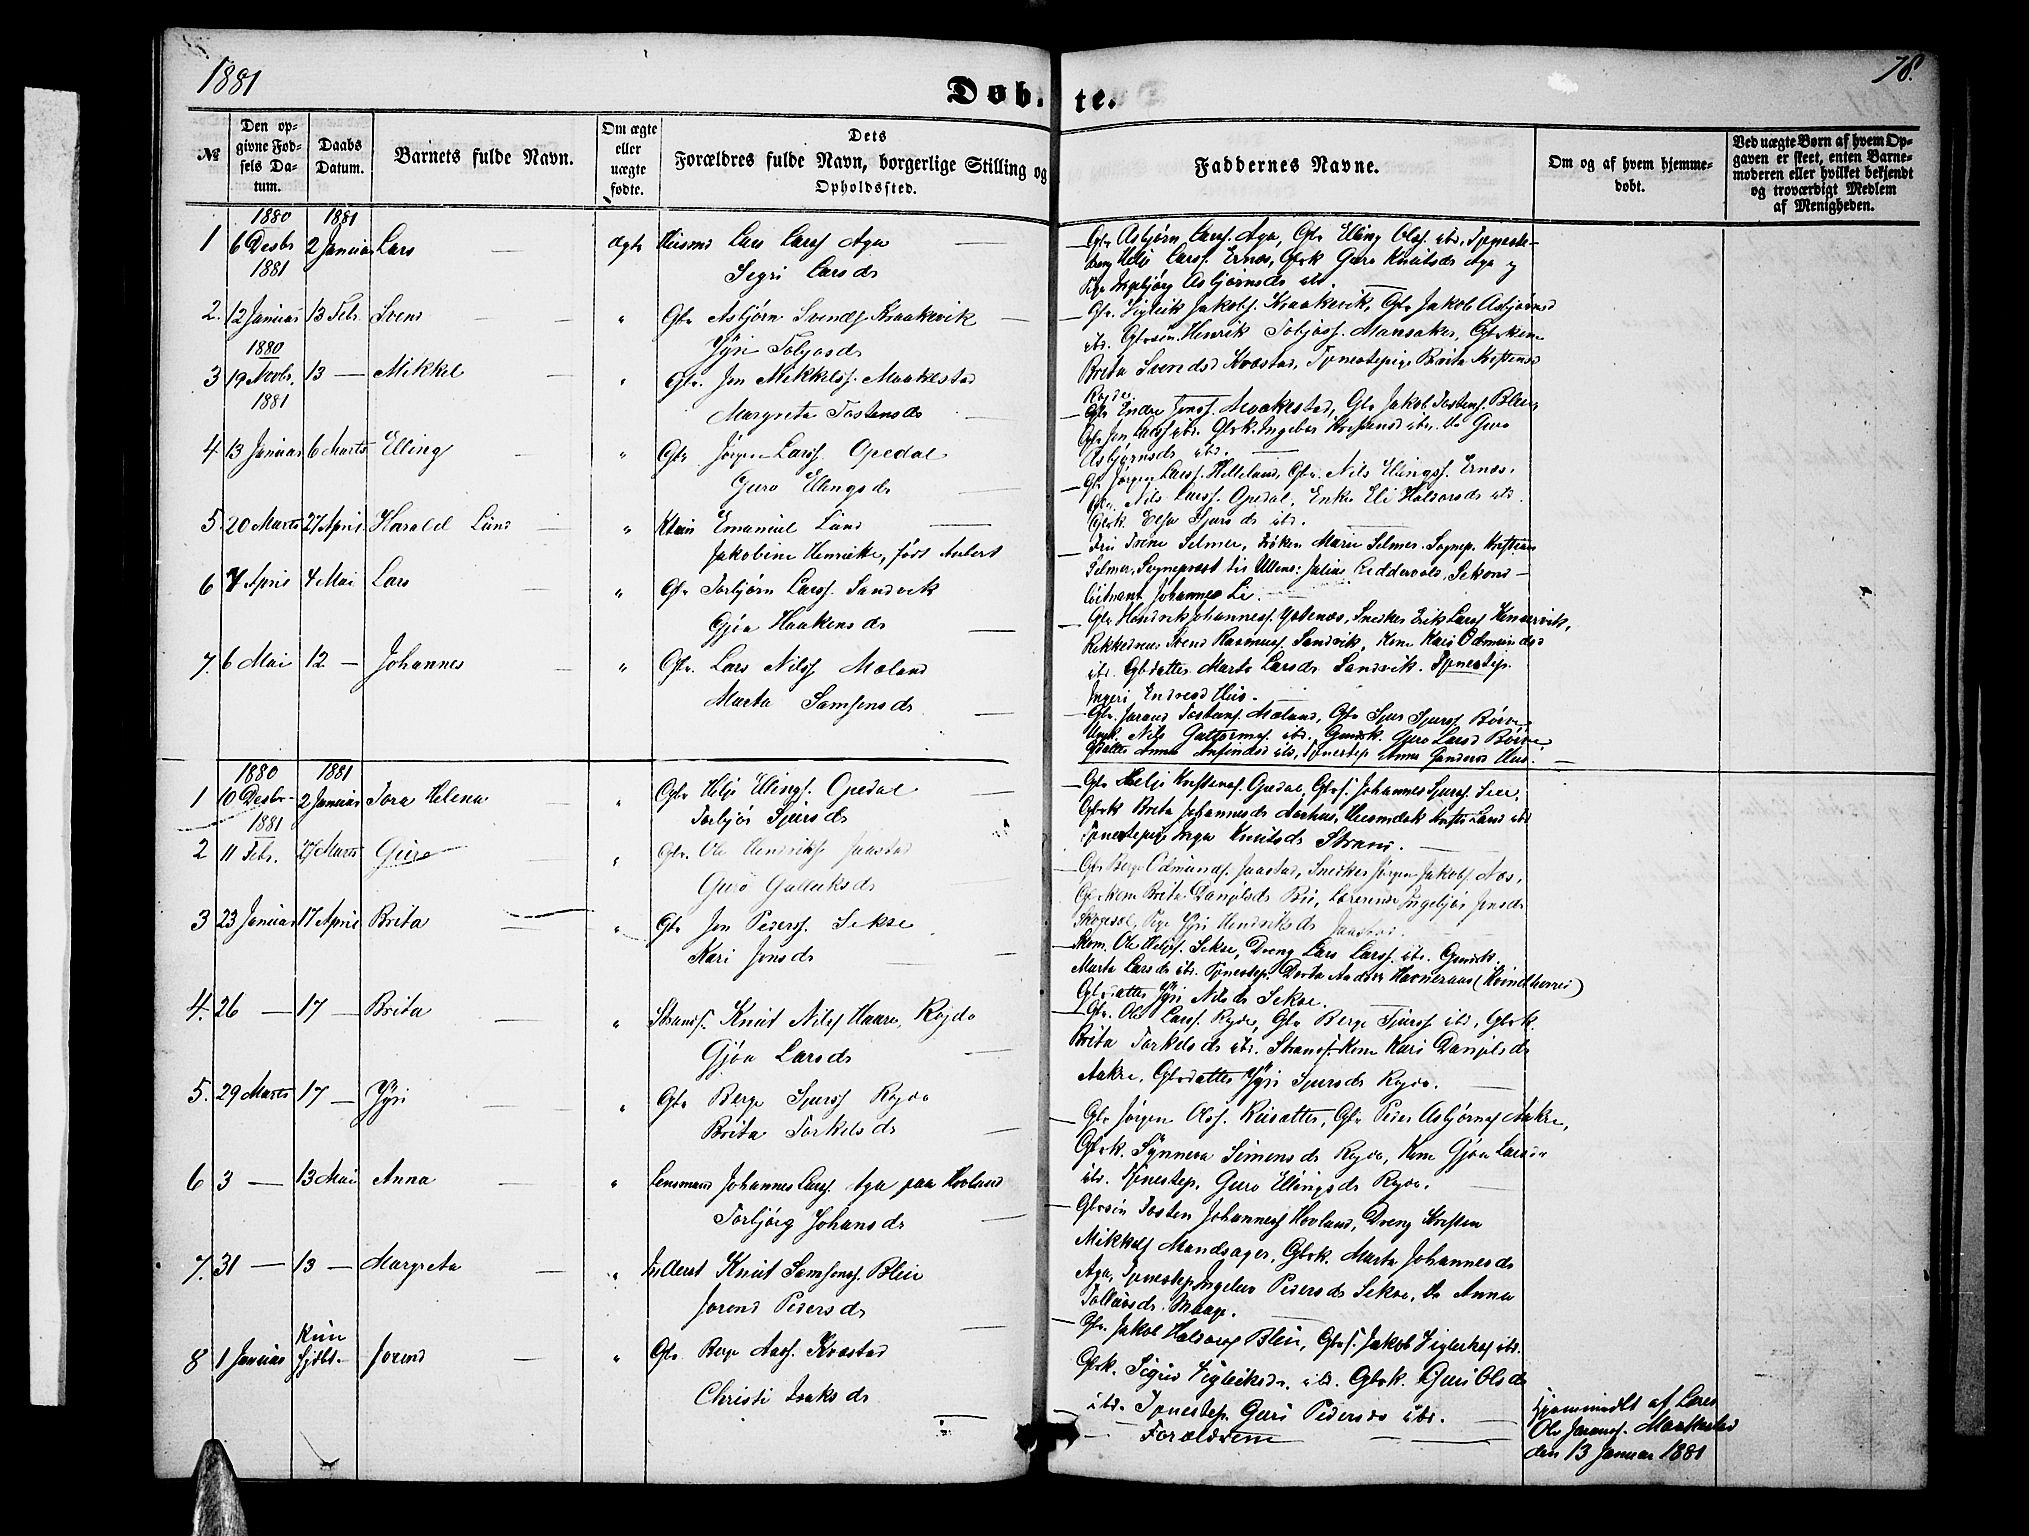 1881
Døbte.
78.
№
Den opgivne Fødsels Datum.
Daabs Datum.
Barnets fulde Navn.
Om ægte eller uægte fødte.
Dets Forældres fulde Navn, borgerlige Stilling og Opholdssted.
Faddernes Navne.
Om og af hvem hjemmedøbt.
Ved uægte Børn af hvem Opgaven er skeet, enten Barnemoderen eller hvilket bekjendt og troværdigt Medlem af Menigheden.
1880 1881
1 6 Desbr 2 Januar Lars ægte Huusmd Lars Larss Aga
1881
Segri Larsdr
Gbr Asbjørn Larss. Aga, Gbr Elling Olss. ibd, Tjeneste-
dreng Helje Larss. Ernæs, Gbrk Guro Knutsdr Aga og
Pige Ingebjørg Asbjørnsdr ibd.
2. 12 Januar 13 Febr. Svend " Gbr Asbjørn Svendss Kraakevik
Jyri Tobjasdr
Gbr. Vigleik Jakobss. Kraakevik, Gbr Jakob Asbjørnss
ibd. Gbrsøn Henrik Tobjass. Mansaker, Gbrkone
Brita Svendsd Kvæstad, Tjenestepige Brita Kristensd
Røjde.
1880
3 19 Novbr. 13 — Mikkel " Gbr. Jon Mikkelss. Maakestad
1881
Margreta Tostensdr
Gbr Endre Jonss. Maakestad, Gbr Jakob Tostenss. Bleie,
Gbr Jon Larss ibd. Gbrk. Ingebor Kristensd ibd. Do Guro
Asbjørnsdr ibd.
4. 13 Januar 6 Marts Elling " Gbr Jørgen Larss. Opedal
Guro Ellingsdr
Gbr Jørgen Larss. Helleland, Gbr. Nils Ellingss. Ernæs,
Gbr. Nils Larss. Opedal, Enke Eli Haldorsdr ibd.
Gbrk. Elsa Sjursdr ibd.
5. 20 Marts 27 April Harald Lund " Emanuel Lund
Jakobine Henrieke, født Aubert
Fru Irene Selmer, Frøken Marie Selmer. Sognep. Kristian
Selmer, Sogneprest til Ullens: Julius Riddervold, Sekond-
løitnant Johannes Li.
6 4 April 4 Mai Lars " Gbr Torbjørn Larss. Sandvik
Gjøa Haakensdr
Gbr Hendrik Johanness. Ystenæs, Snedker Erik Larss Kinservik,
Svend Rasmuss Sandvik, Kone Kari Odmundsd
ibd. Gbdatter Marta Larsdr Sandvik. Tjenestep.
Ingeri Endresd Hus.
7. 6 Mai 12 — Johannes " Gbr. Lars Nilss Mæland
Marta Samsonsdr
Gbr. Jarand Tostenss. Mæland, Gbr Sjur Sjurss. Børve,
Ungk. Nils Guttormss ibd. Gaardk. Guro Larsd Børve,
Gbdatter Anna Arfindsd ibd, Tjenestep Anna Gundersd Hus.
1880 1881
1 10 Desbr 2 Januar Tora Helena " Gbr Helje Ellings. Opedal
1881
Torbjør Sjursdr
Gbr Helje Kristenss. Opedal, Gbrs. Johannes Sjurss. Lee,
Gbrk Brita Johannesdr Aarhus, ibd
Tjenestepige Inga Knutsdr Strand.
2 11 Febr. 27 Marts Guro " Gbr. Ole Hendrikss Jaastad
Guro Gullecksdr
Gbr Berge Odmundss. Jaastad, Snedker Jørgen Jakobss. Næs,
Gbrkone Brita Danjelsdr Bu, Ingebjør Jonsdr
Pige Jyri Hendriksdr Jaastad.
3 23 Januar 17 April Brita " Gbr Jon Pederss. Sekse
Kari Jonsdr
Ole Heljes. Sekse, Dreng Lars Larss. ibd. Gaardk.
Marta Larsdr ibd. Tjenestep. Dorta Andersd Havneraas (Kvindherred)
Gbrdatter Jyri Nilsdr Sekse.
4. 26 — 17 — Brita " Strands. Knut Nilss Haare, Røjde
Gjøa Larsdr
Gbr. Ole Larss. Røjde, Gbr Berge Sjurss ibd, Gbrk.
Brita Torkelsdr ibd. Strands. Kone Kari Danjelsdr
Aakre, Gbrdatter Jyri Sjursdr Røjde.
5. 29 Marts 17 — Jyri " Gbr Berge Sjurss Røjde
Brita Torkelsdr
Gbr Jørgen Olss. Reisæter, Gbr Peder Asbjørnss Aakre,
Gbrk. Synneva Simensdr Røjde, Kone Gjøa Larsdr
ibd. Tjenestep. Guro Ellingsdr Røjde.
6 3 — 13 Mai Anna " Lensmand Johannes Larss. Aga paa Hovland
Torbjørg Johansdr
Gbrsøn Tosten Johanness Hovland, Dreng Kristen
Mikkelss Mandsager, Gbrk. Marta Johannesdr
Aga, Tjenestep Ingebor Pedersdr Sekse, Do Anna
Tolleivsdr Maage.
7. 31 — 13 — Margreta " Inderst Knut Samsonss. Bleie
Jorend Pedersdr
Gbr. Jakob Haldorss Bleie, Gbrs. Jakob Vigleiks ibd.
Gbrk. Sigrid Vigleiksdr. ibd. Gbrk. Guri Olsdr
ibd. Tjenestep. Guri Pedersdr ibd.
8 1 Januar Kun hjdbt. Jorend " Gbr Berge Aass. Kvæstad
Christi Isaksdr
Forældrene
Hjemmedøbt af Lærer
Ole Jaranss. Maakestad
den 13 Januar 1881